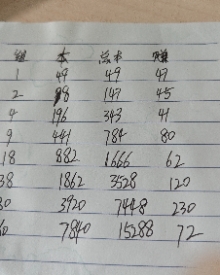 组 本 总本 赚
1 49 49 49
2 98 147 45
4 196 343 41
9 441 784 80
18 882 1666 62
38 1862 3528 120
80 3920 7448 230
60 7840 15288 72